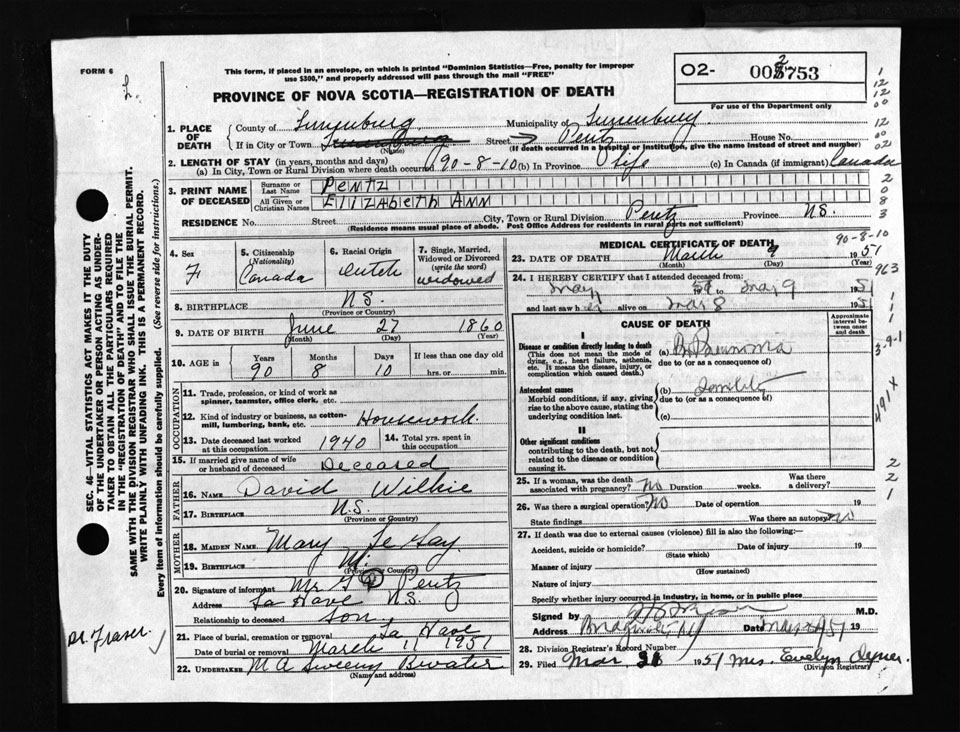 FORM 6
This form, if placed in an envelope, on which is printed "Dominion Statistics—Free, penalty for improper
use $300," and properly addressed will pass through the mail "FREE"
02- 00 753
PROVINCE OF NOVA SCOTIA—REGISTRATION OF DEATH
For use of the Department only
1. PLACE OF DEATH
County of Lunenburg Municipality of Lunenburg
If in City or Town Street Pentz House No.
(Name) (If death occurred in a hospital or institution, give the name instead of street and number)
2. LENGTH OF STAY (in years, months and days)
(a) In City, Town or Rural Division where death occurred 90-8-10 (b) In Province life (c) In Canada (if immigrant) Canada
3. PRINT NAME OF DECEASED
Surname or Last Name Pentz
All Given or Christian Names Elizabeth Ann
RESIDENCE No. Street City, Town or Rural Division Pentz Province N.S.
(Residence means usual place of abode. Post Office Address for residents in rural parts not sufficient)
4. Sex F
5. Citizenship (Nationality) Canada
6. Racial Origin Dutch
7. Single, Married, Widowed or Divorced (write the word) widowed
8. BIRTHPLACE N.S.
(Province or Country)
9. DATE OF BIRTH June 27 1860
(Month) (Day) (Year)
10. AGE in Years 90 Months 8 Days 10 If less than one day old hrs. or min.
OCCUPATION
11. Trade, profession, or kind of work as spinner, teamster, office clerk, etc.
12. Kind of industry or business, as cotton-mill, lumbering, bank, etc. Housework
13. Date deceased last worked at this occupation 1940
14. Total yrs. spent in this occupation
15. If married give name of wife or husband of deceased Deceased
FATHER
16. NAME David Wilkie
17. BIRTHPLACE N.S.
(Province or Country)
MOTHER
18. MAIDEN NAME Mary
19. BIRTHPLACE
(Province or Country)
20. Signature of informant Mr. Pentz
Address La Have N.S.
Relationship to deceased son
21. Place of burial, cremation or removal La Have
Date of burial or removal March 11 1951
22. UNDERTAKER M A Sweeny Bwater
(Name and address)
MEDICAL CERTIFICATE OF DEATH
90-8-10
23. DATE OF DEATH March 9 1951
(Month) (Day)
24. I HEREBY CERTIFY that I attended deceased from:
May 19 to Mar 9 1951
and last saw her alive on Mar 8 1951
CAUSE OF DEATH
Approximate interval between onset and death
I
Disease or condition directly leading to death
(This does not mean the mode of dying, e.g., heart failure, asthenia, etc. It means the disease, injury, or complication which caused death.)
(a)
due to (or as a consequence of)
Antecedent causes
Morbid conditions, if any, giving rise to the above cause, stating the underlying condition last.
(b)
due to (or as a consequence of)
(c)
II
Other significant conditions
contributing to the death, but not related to the disease or condition causing it.
25. If a woman, was the death associated with pregnancy? No Duration weeks. Was there a delivery?
26. Was there a surgical operation? No Date of operation 19
State findings Was there an autopsy? No
27. If death was due to external causes (violence) fill in also the following:—
Accident, suicide or homicide? Date of injury 19
(State which)
Manner of injury
(How sustained)
Nature of injury
Specify whether injury occurred in Industry, in home, or in public place
Signed by M.D.
Address Date 19
28. Division Registrar's Record Number
29. Filed Mar 1951 Mrs. Evelyn
(Division Registrar)
SEC. 46—VITAL STATISTICS ACT MAKES IT THE DUTY
OF THE UNDERTAKER OR PERSON ACTING AS UNDER-
TAKER TO OBTAIN ALL THE PARTICULARS REQUIRED
IN THE "REGISTRATION OF DEATH" AND TO FILE THE
SAME WITH THE DIVISION REGISTRAR WHO SHALL ISSUE THE BURIAL PERMIT.
WRITE PLAINLY WITH UNFADING INK. THIS IS A PERMANENT RECORD.
Every item of information should be carefully supplied. (See reverse side for instructions.)
Dr. Fraser.
963
491 X